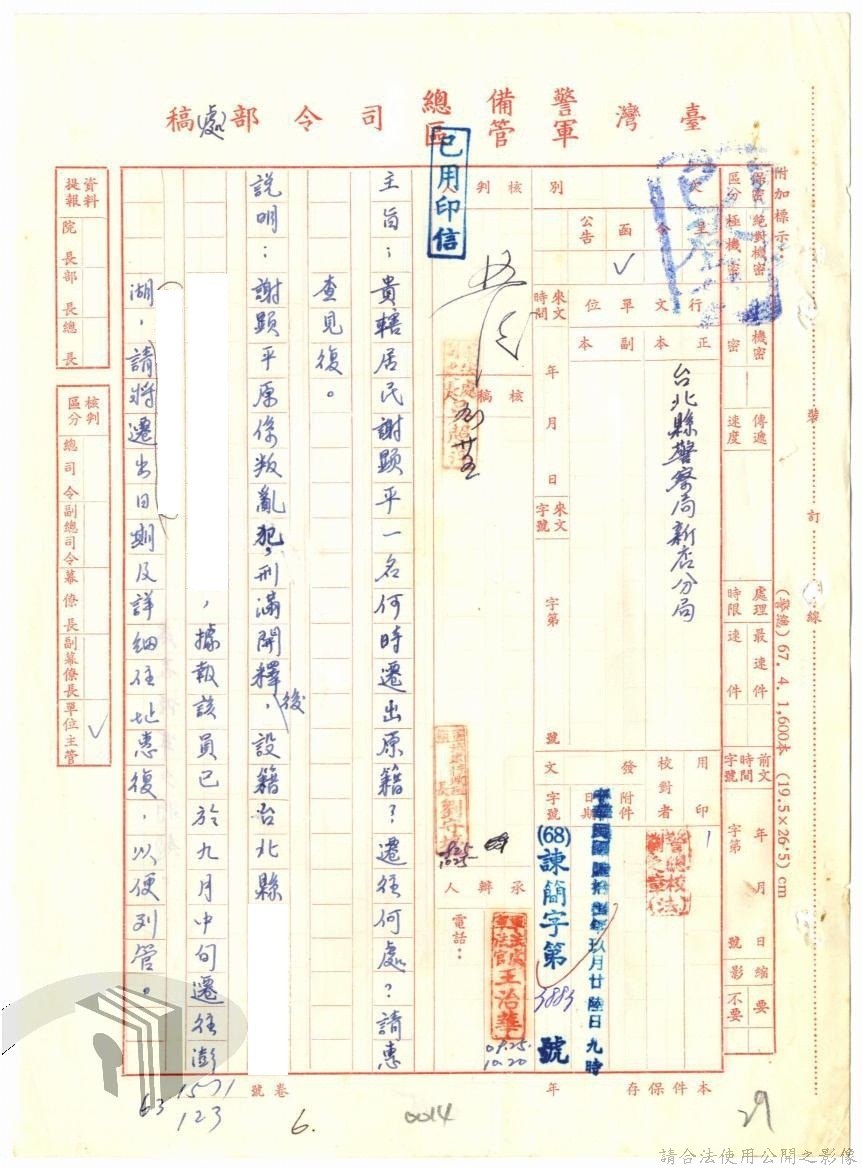 臺灣警備總司令部處稿
軍管區
已用印信
附加標示
保密區分
絕對機密
極機密
機密
密
傳遞速度
處理時限
最速件
速件
前文時間字號
年 月 日
字第 號
縮影
要
不要
文別
呈
令
函
公告
✓
行文單位
正本
副本
台北縣警察局新店分局
來文時間
年 月 日
來文字號
字第 號
用印
校對者
發文
附件
日期
字號
中華民國陸拾捌年玖月廿陸日九時
(68)諫簡字第3883號
核判人
核稿人
承辦人
電話:
軍法官王治華
09.25.
10.20
0925
1025
主旨:貴轄居民謝顯平一名何時遷出原籍?遷往何處?請惠
查見復。
說明:謝顯平原係叛亂犯,刑滿開釋後,設籍台北縣
,據報該員已於九月中旬遷往澎
湖,請將遷出日期及詳細住址惠復,以便列管。
資料提報
院長
部長
總長
核判區分
總司令
副總司令
幕僚長
副幕僚長
單位主管
✓
裝訂線
(警總)67. 4. 1,600本 (19.5×26.5)cm
本件保存 年
卷號
63
1571
123
6.
0014
29
請合法使用公開之影像